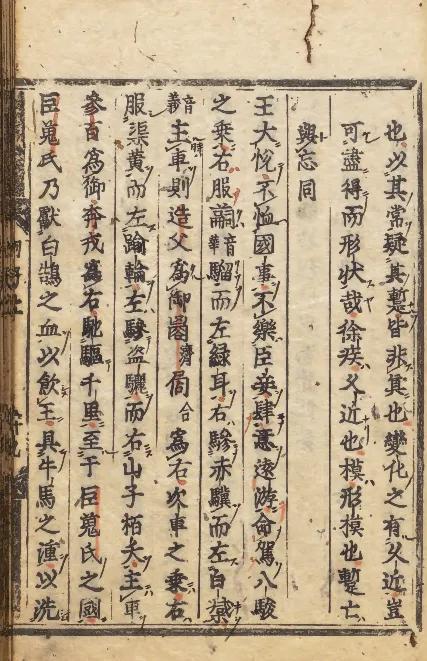 也以其常疑其蹔皆非其也變化之有久近豈
可盡得而形狀哉徐疾久近也模形模也蹔亡
與忘同
王大悅不恤國事不樂臣妾肆意遠游命駕八駿
之乘右服音華騮而左綠耳右驂赤驥而左白
音義主車則造父為御齊合為右次車之乘右
服渠黃而左踰輪左驂盜驪而右山子栢夭主車
參百為御奔戎為右馳驅千里至于巨蒐氏之國
巨蒐氏乃獻白鵠之血以飲王具牛馬之湩以洗